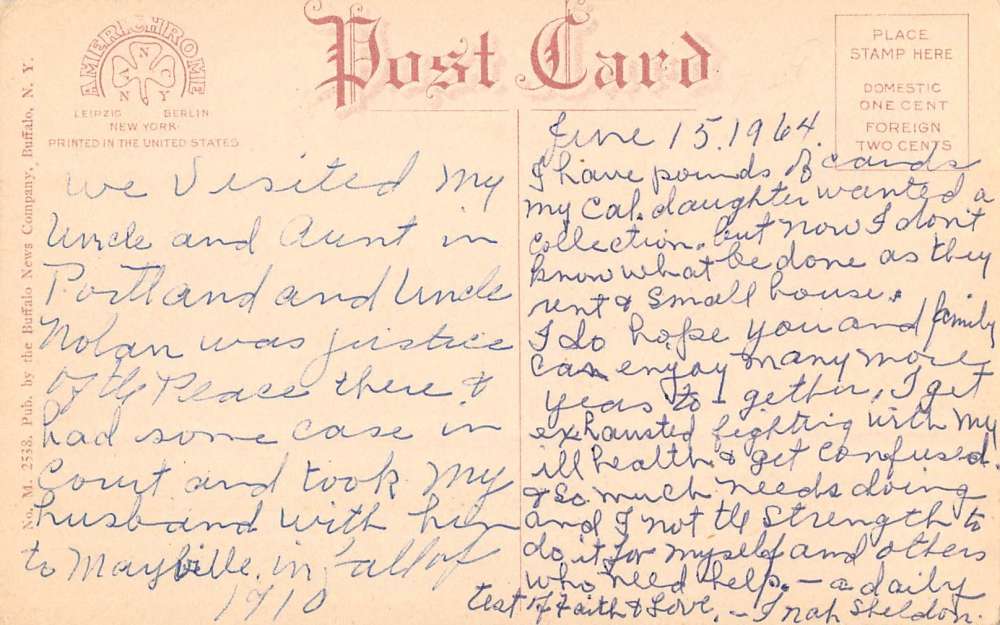 AMERICHROME
N
N C
N Y
LEIPZIG BERLIN
NEW YORK
PRINTED IN THE UNITED STATES
Post Card
PLACE
STAMP HERE
DOMESTIC
ONE CENT
FOREIGN
TWO CENTS
No. M. 2538. Pub. by the Buffalo News Company, Buffalo, N. Y.
we Visited My
Uncle and Aunt in
Portland and Uncle
Nolan was justice
of the Peace there &
had some case in
Court and took My
husband with him
to Mayville, in fall of
1910
June 15, 1964.
I have pounds of cards
my Cal. daughter wanted a
collection. but now I don't
know what be done as they
rent & small house.
I do hope you and family
can enjoy many more
years to-gether, I get
exhausted fighting with my
ill health & get confused.
& so much needs doing
and I not the strength to
do it for myself and others
who need help. - a daily
test of Faith & Love. - Inah Sheldon.